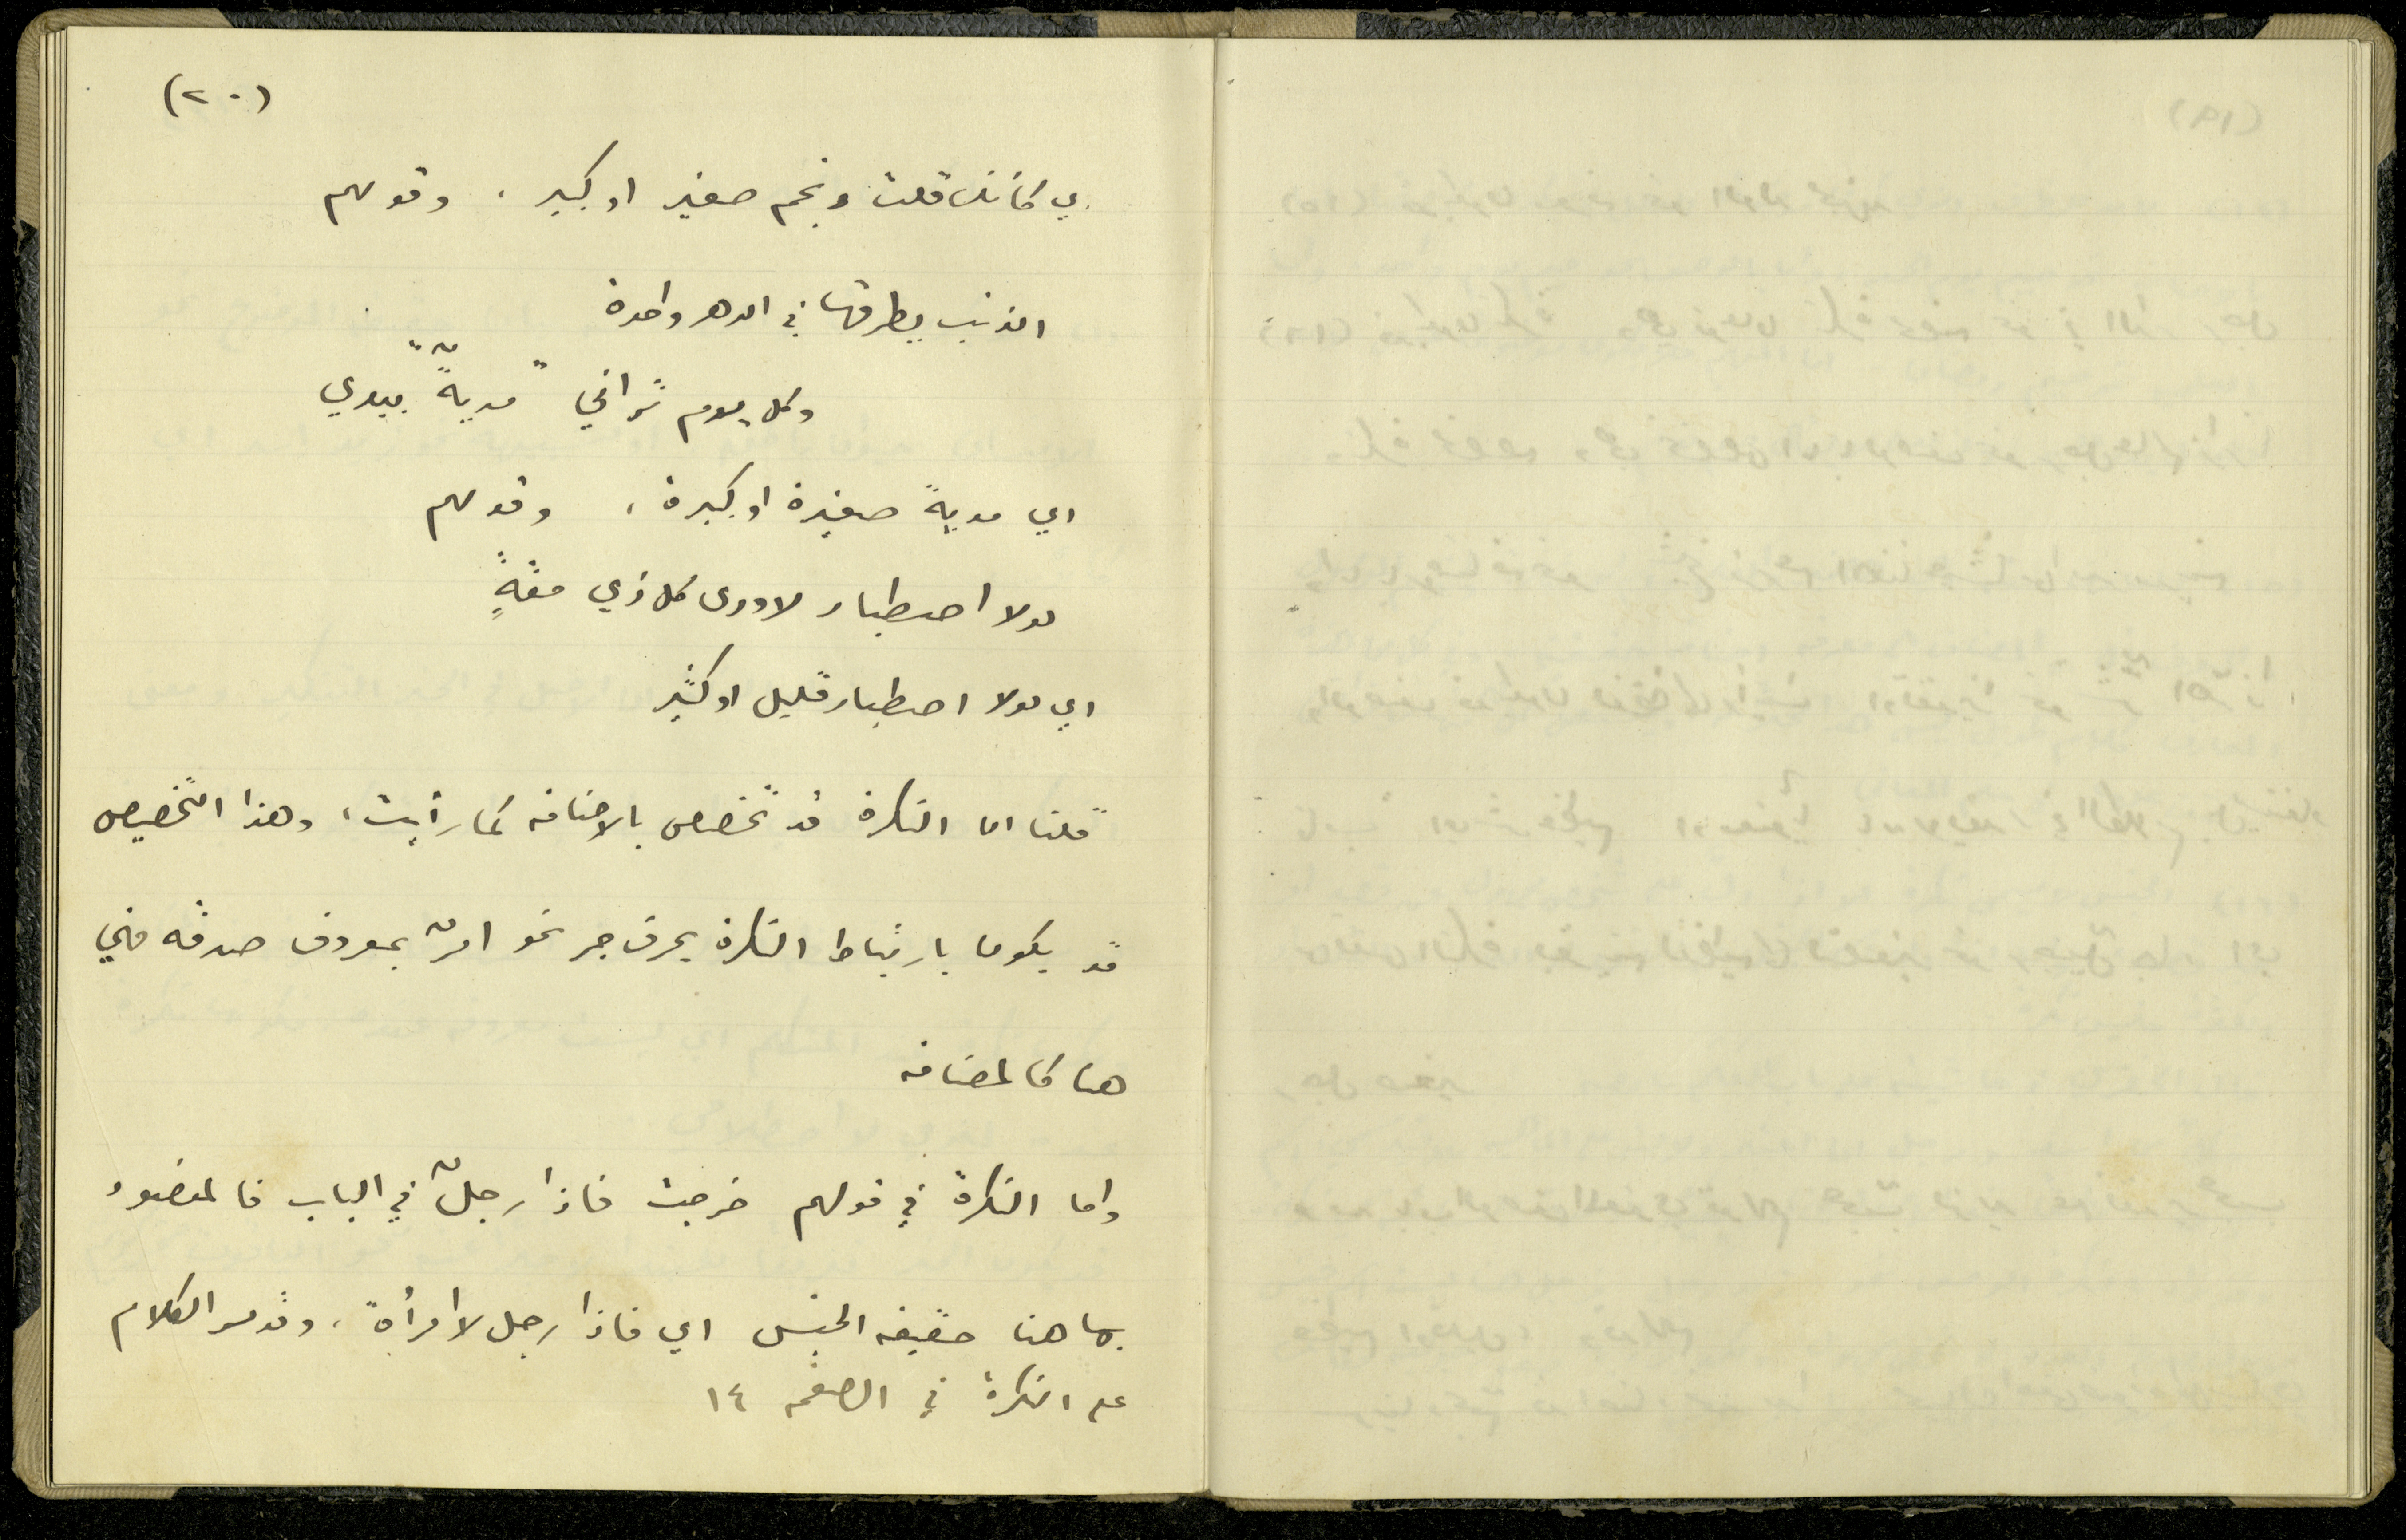 (٢٠)
اي كأنك قلت ونجم صغير او كبير ، وقولهم
الذئب يطرقها في الدهر واحدة
وكل يوم تراني " مديةٌ " بيدي
اي مدية صغيرة او كبيرة ، وقولهم
لولا اصطبار لاودى كل ذي مقةٍ
اي لولا اصطبار قليل او كثير
قلنا ان النكرة قد تخصص بالاضافه كما رأيت ، وهذا التخصيص
قد يكون بارتباط النكرة بحرف جر نحو امرٌ بمعروف صدقه فهي
هنا كالمضافه
واما النكرة في قولهم خرجت فاذا رجلٌ في الباب فالمقصود
بها هنا حقيقه الجنس اي فاذا رجل لا امرأة ، وقد مر الكلام
على النكرة في الصفحه ١٤